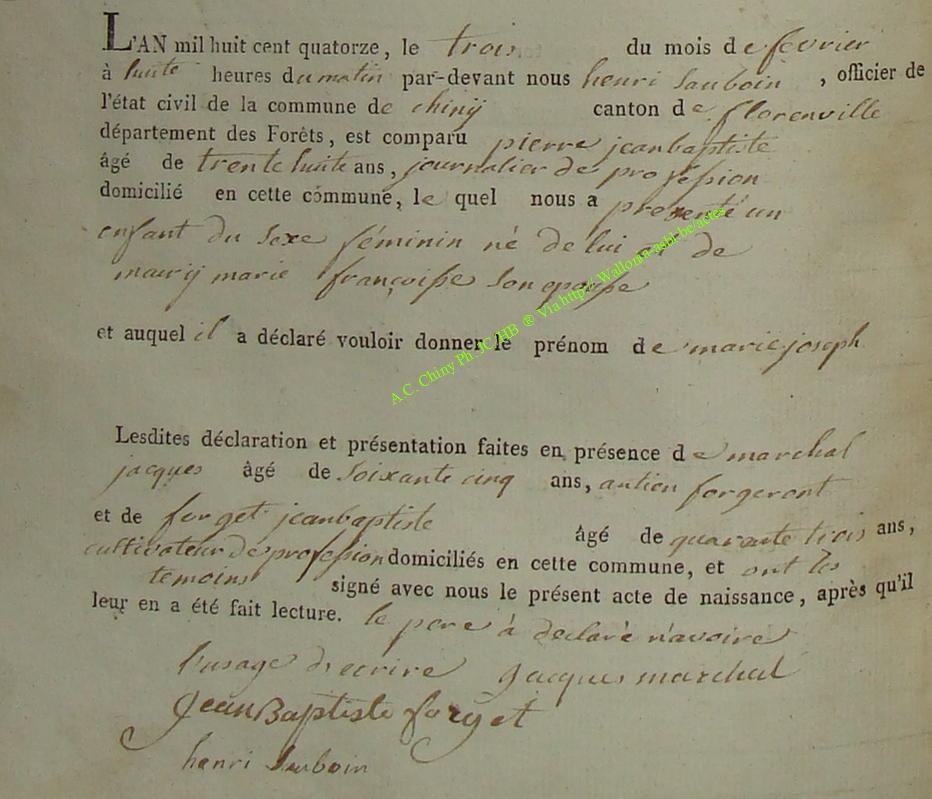 L'AN mil huit cent quatorze, le trois du mois de fevrier
à huite heures du matin par-devant nous henri Sauboin, officier de
l'état civil de la commune de chinÿ canton de florenville
département des Forêts, est comparu pierre jeanbaptiste
âgé de trente huite ans, journalier de profession
domicilié en cette commune, le quel nous a presenté un
enfant du sexe féminin né de lui et de
maurij marie françoisse son epousse
et auquel il a déclaré vouloir donner le prénom de marie joseph
A.C. Chiny Ph. JC HB ® Via http://Wallonia-asbl-be/actes
Lesdites déclaration et présentation faites en présence de marchal
jacques âgé de soixante cinq ans, antien forgeront
et de forget jeanbaptiste âgé de quarante trois ans,
cultivateur de profession domiciliés en cette commune, et ont les
temoins signé avec nous le présent acte de naissance, après qu'il
leur en a été fait lecture. le pere à déclaré n'avoire
l'usage d'ecrire jacques marchal
Jean Baptiste forget
henri Sauboin